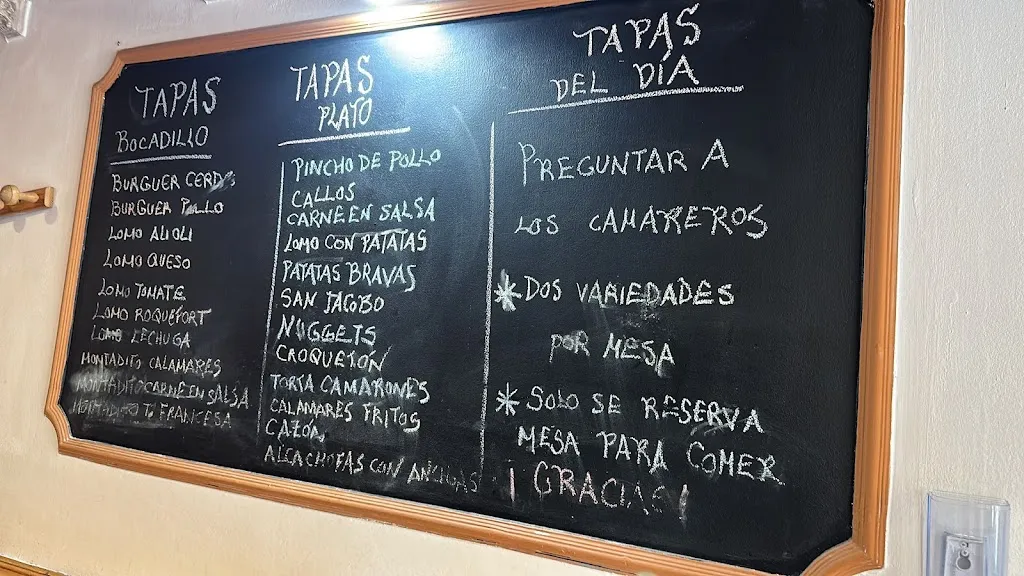 TAPAS
BOCADILLO
BURGUER CERDO
BURGUER POLLO
LOMO ALIOLI
LOMO QUESO
LOMO TOMATE
LOMO ROQUEFORT
LOMO LECHUGA
MONTADITO CALAMARES
MONTADITO CARNE EN SALSA
MONTADITO T. FRANCESA
TAPAS
PLATO
PINCHO DE POLLO
CALLOS
CARNE EN SALSA
LOMO CON PATATAS
PATATAS BRAVAS
SAN JACOBO
NUGGETS
CROQUETÓN
TORTA CAMARONES
CALAMARES FRITOS
CAZON
ALCACHOFAS CON
TAPAS
DEL DÍA
PREGUNTAR A
LOS CAMAREROS
* DOS VARIEDADES
POR MESA
* SOLO SE RESERVA
MESA PARA COMER
¡GRACIAS!